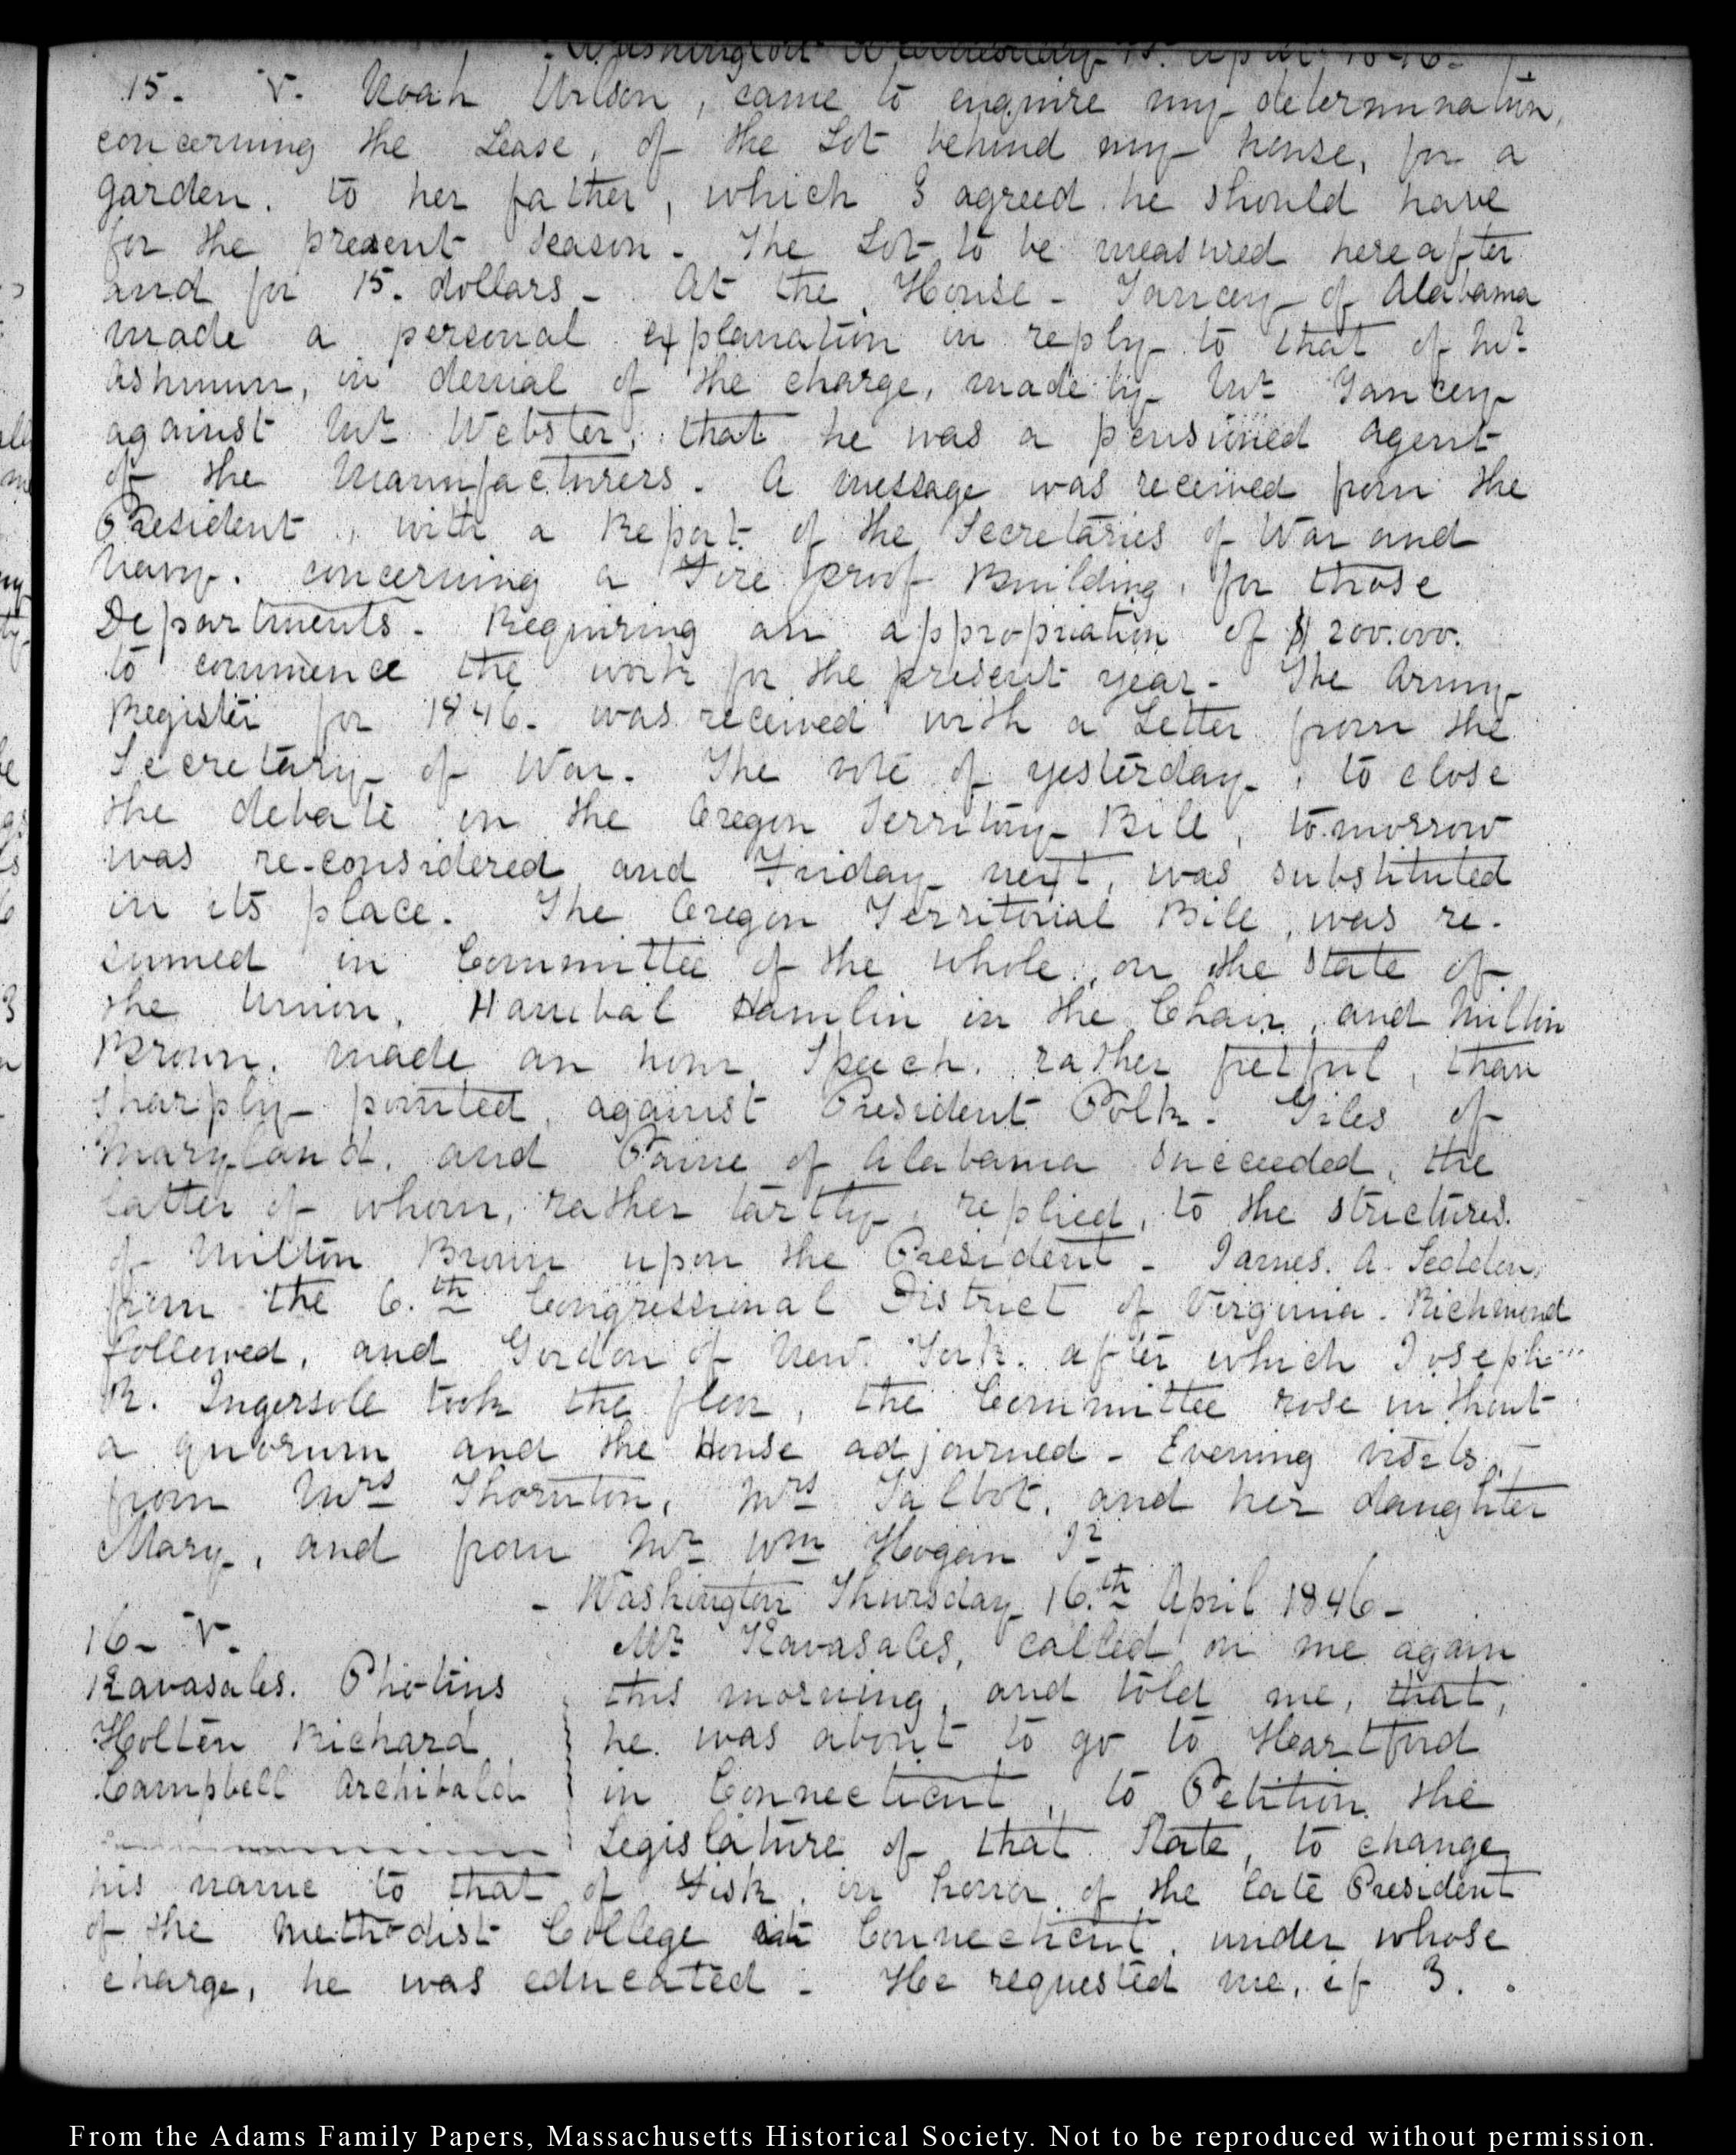 - Washington Wednesday 15. April 1846-
15. V. Noah Wilson, came to enquire my determination,
concerning the Lease, of the Lot behind my house, for a
garden. to her father, which I agreed he should have
for the present season - The Lot to be measured hereafter
and for 15. dollars - At the House - Yancey of Alabama
made a personal explanation in reply to that of Mr.
Ashmun, in denial of the charge, made by Mr. Yancey
against Mr. Webster, that he was a pensioned agent
of the Manufacturers. A message was received from the
President, with a Report of the Secretaries of War and
Navy. concerning a Fire proof Building, for those
Departments - Requiring an appropriation of $200.000.
to commence the work for the present year - The Army
Register for 1846. was received with a Letter from the
Secretary of War. The vote of yesterday, to close
the debate on the Oregon Territory Bill, tomorrow
was re-considered and Friday next, was substituted
in its place. The Oregon Territorial Bill, was re-
sumed in Committee of the whole, on the state of
the Union, Hannibal Hamlin in the Chair, and Milton
Brown. made an hour Speech. rather fretful, than
sharply pointed, against President Polk. Giles of
Maryland. and Paine of Alabama succeeded, the
latter of whom, rather tartly, replied, to the strictures.
of Milton Brown upon the President - James. A. Seddon,
from the 6.th Congressional District of Virginia. Richmond
followed, and Gordon of New. York. after which Joseph
R. Ingersole took the floor, the Committee rose without
a quorum and the House adjourned - Evening visits
from Mrs Thornton, Mrs Talbot, and her daughter
Mary, and from Mr Wm Hogan Jr
- Washington Thursday 16.th April 1846-
16- V.
Kavasales. Photius
Holten Richard
Campbell Archibald
Mr Kavasales, called on me again
this morning, and told me, that,
he was about to go to Heartford
in Connecticut, to Petition the
Legislature of that State, to change
his name to that of Fisk, in honor of the late President
of the Methodist College at Connecticut, under whose
charge, he was educated - He requested me, if I. .
From the Adams Family Papers, Massachusetts Historical Society. Not to be reproduced without permission.